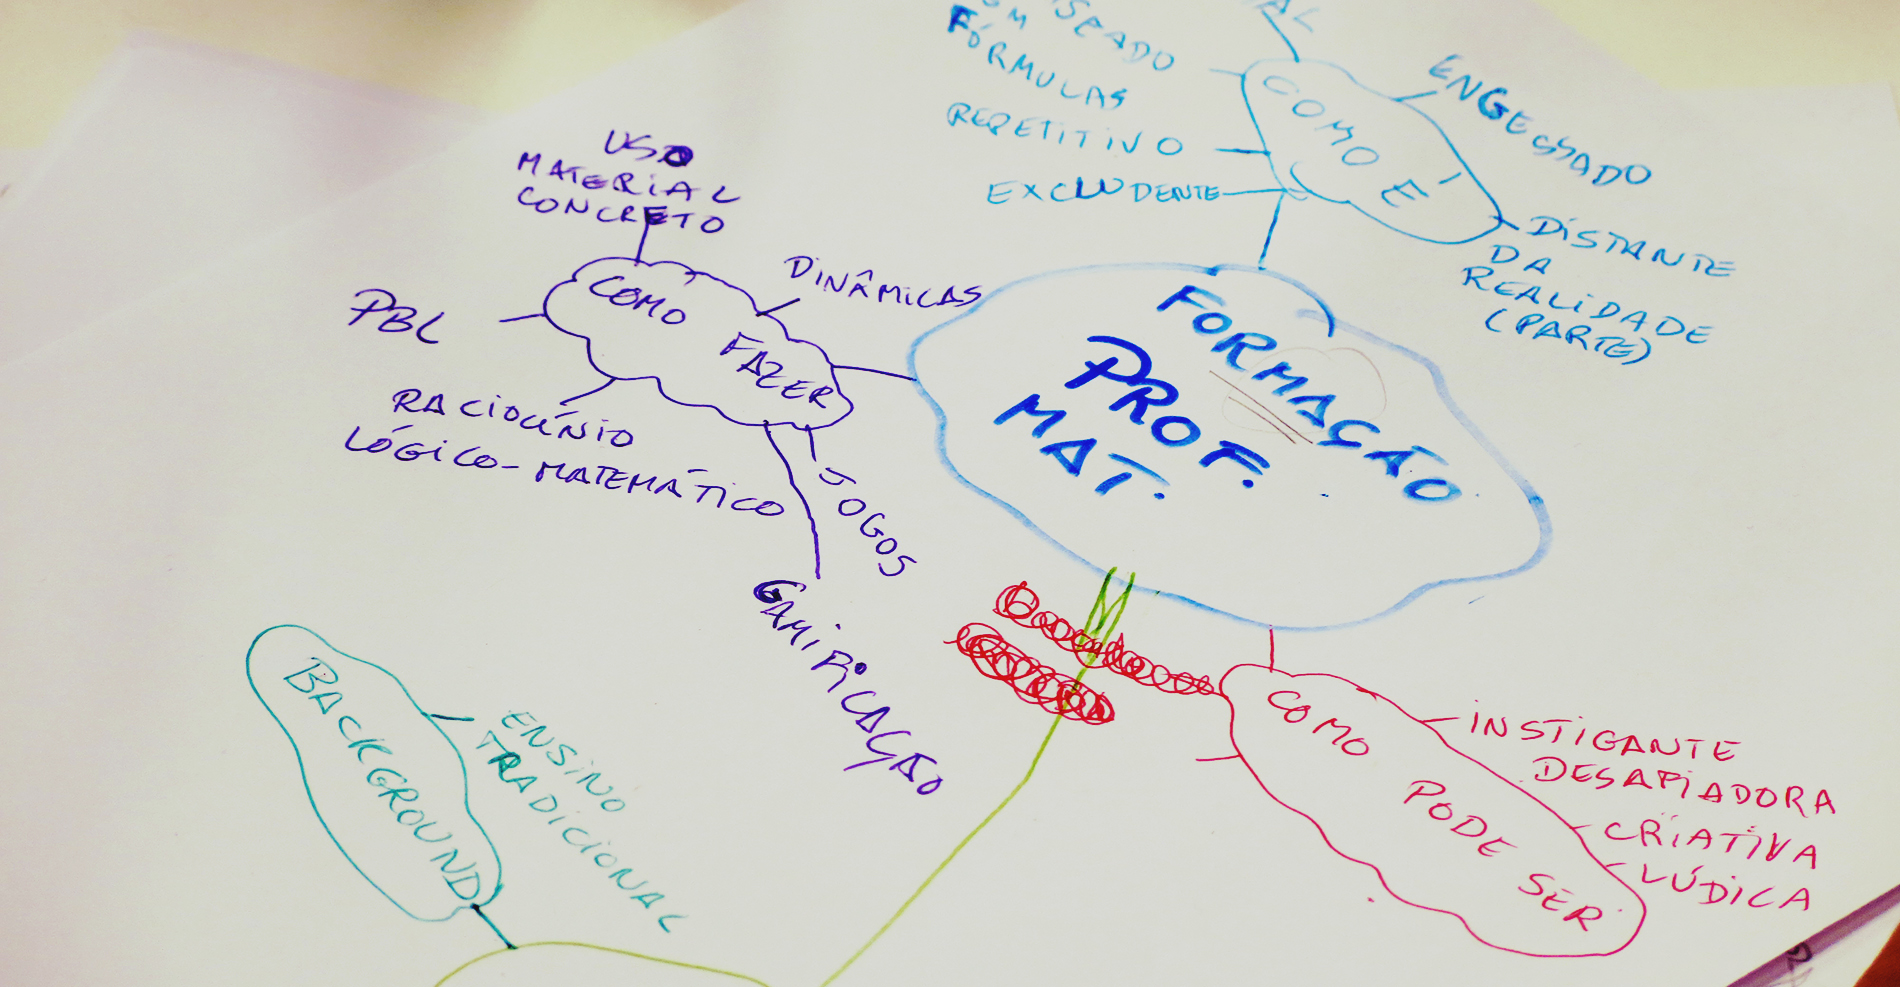 FÓRMULAS
REPETITIVO
EXCLUDENTE
COMO É
ENGESSADO
DISTANTE
DA
REALIDADE
(PARTE)
USO
MATERIAL
CONCRETO
DINÂMICAS
COMO
FAZER
PBL
RACIOCÍNIO
LÓGICO-MATEMÁTICO
JOGOS
GAMIFICAÇÃO
FORMAÇÃO
PROF.
MAT.
BACKGROUND
ENSINO
TRADICIONAL
COMO
PODE
SER
INSTIGANTE
DESAFIADORA
CRIATIVA
LÚDICA